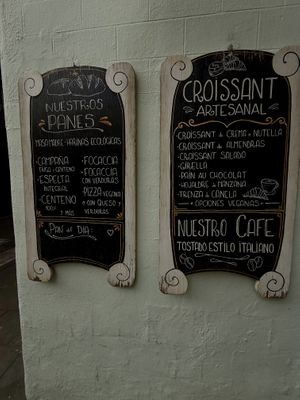 NUESTROS
PANES
MASA MADRE - HARINAS ECOLÓGICAS
- CAMPAÑA
TRIGO + CENTENO
- ESPELTA
INTEGRAL
- CENTENO
100%
Y MÁS
- FOCACCIA
- FOCACCIA
CON VERDURAS
- PIZZA VEGANA
O CON QUESO Y
VERDURAS
PAN del DIA:
CROISSANT
ARTESANAL
CROISSANT de CREMA o NUTELLA
CROISSANT de ALMENDRAS
CROISSANT SALADO
GIRELLA
PAIN AU CHOCOLAT
HOJALDRE de MANZANA
TRENZA de CANELA
- OPCIONES VEGANAS -
NUESTRO CAFE
TOSTADO ESTILO ITALIANO